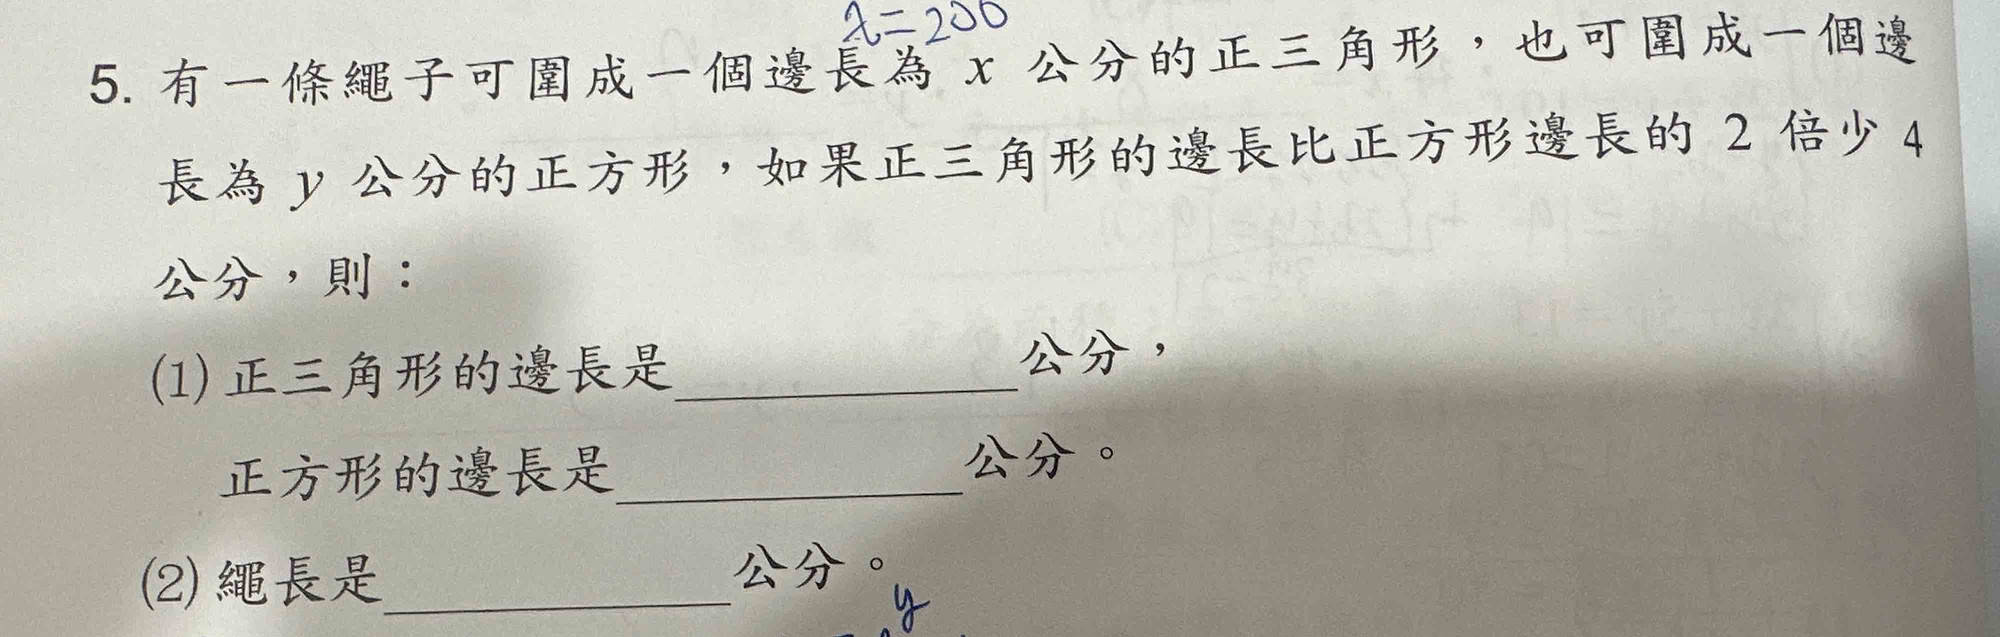 x=200
5. 有一條繩子可圍成一個邊長為 x 公分的正三角形，也可圍成一個邊
長為 y 公分的正方形，如果正三角形的邊長比正方形邊長的 2 倍少 4
公分，則：
(1) 正三角形的邊長是________公分，
正方形的邊長是________公分。
(2) 繩長是________公分。
y